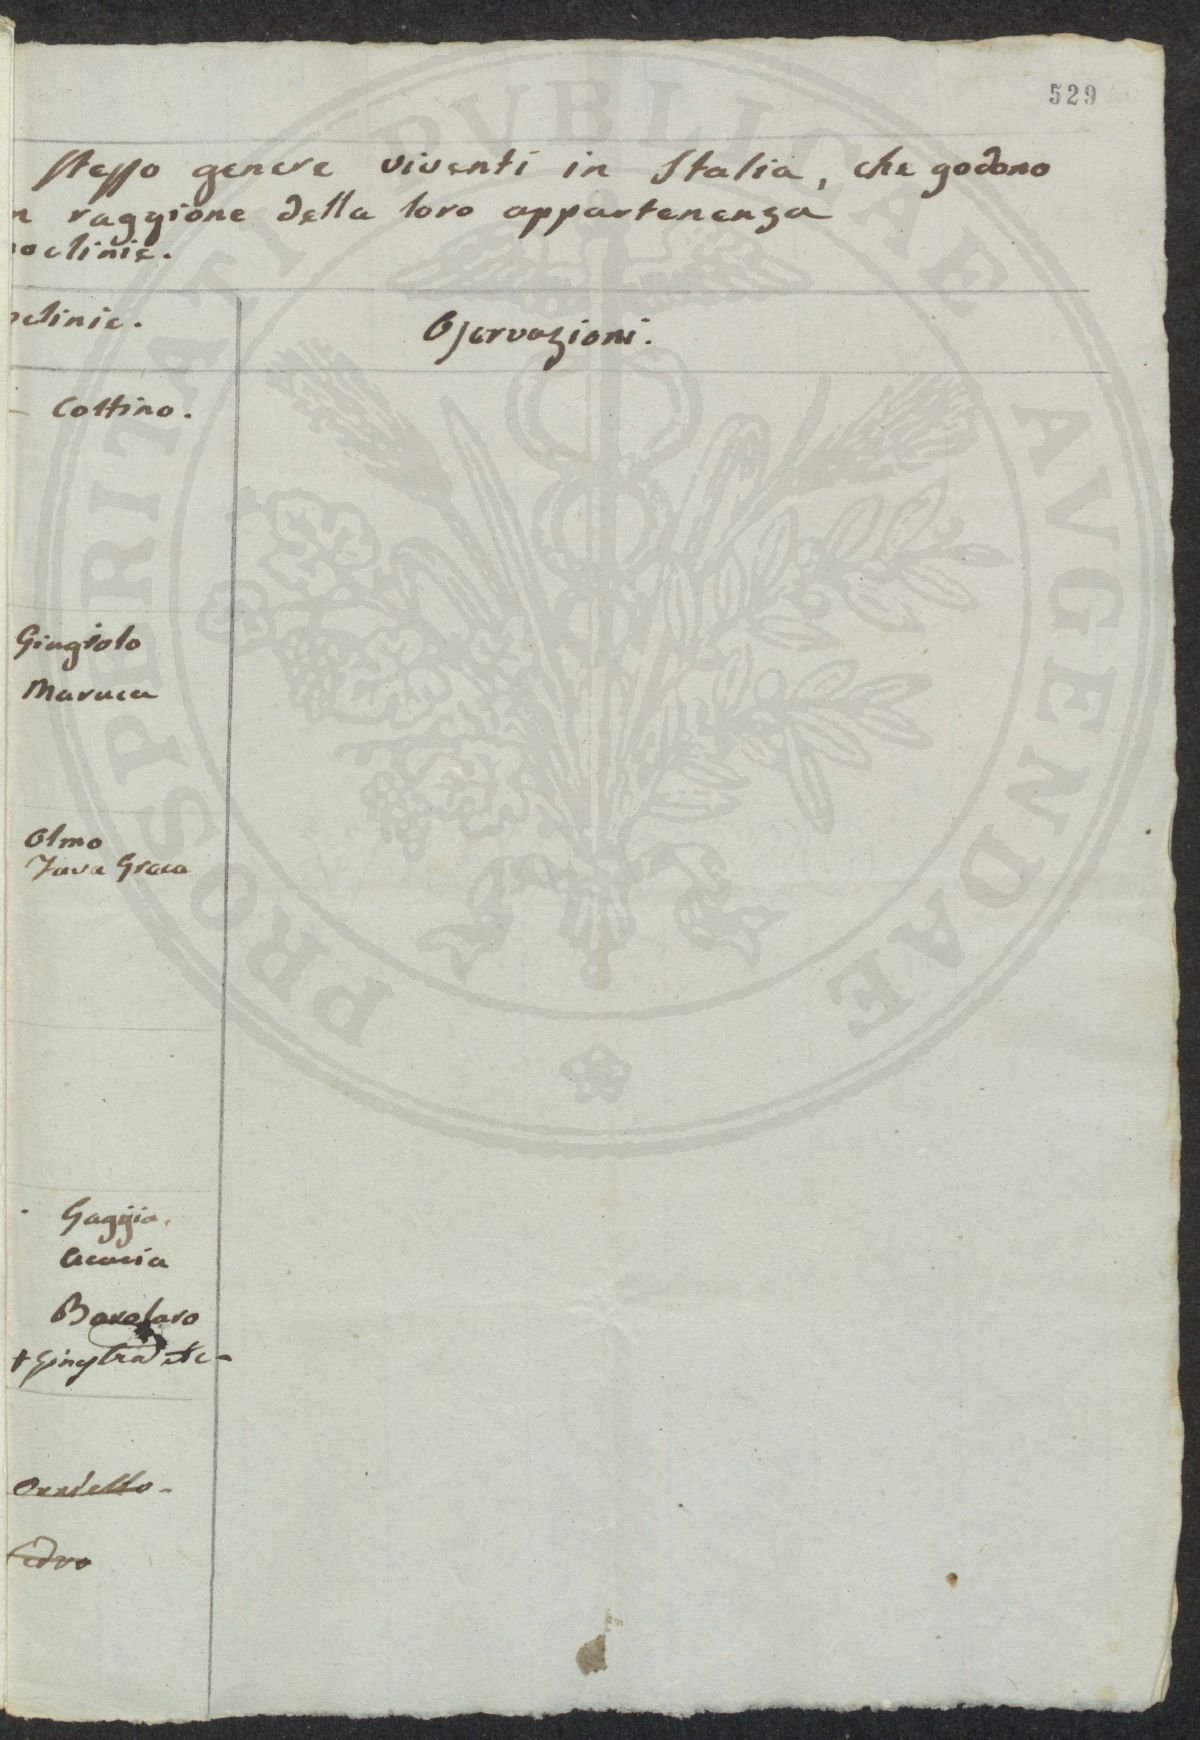 529
stesso genere viventi in Italia, che godono
n raggione della loro appartenenza
oclinie.
oclinie.
Osservazioni.
Cottino.
Giugiolo
Maruca
Olmo
Fava Greca
Gaggia.
Acacia
+ Ginestra etc-
Orniello-
Cedro
PROSPERITATI PVBLICAE AVGENDAE